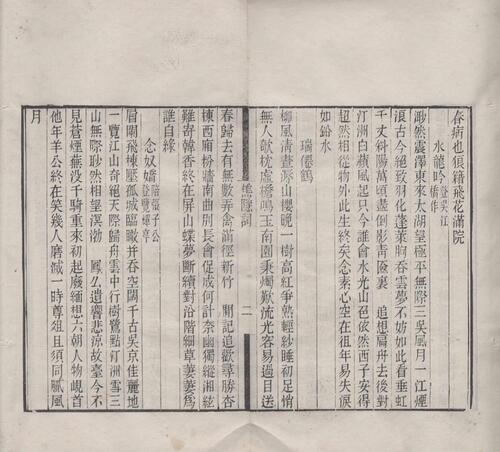 春病也狼籍飛花滿院
水龍吟登吳江橋作
渺然震澤東來太湖望極平無際三吳風月一江煙
浪古今絕致羽化蓬萊胸吞雲夢不妨如此看垂虹
千丈斜陽萬頃盡倒影青匳裏　追想扁舟去後對
汀洲白蘋風起只今誰會水光山色依然西子安得
超然相從物外此生終矣念素心空在徂年易失淚
如鉛水
瑞僊鶴
柳風清晝溽山櫻晚一樹高紅爭熟輕紗睡初足悄
無人欹枕虛檐鳴玉南園秉燭歎流光容易過目送
樵隱詞　二
春歸去有無數弄禽滿徑新竹　閒記追歡尋勝杏
棟西廂粉牆南曲別長會促成何計奈幽獨縱湘絃
難寄韓香終在屏山蝶夢斷續對沿階細草萋萋為
誰自綠
念奴嬌陪張子公登覽煇亭
層闌飛棟壓孤城臨瞰并吞空闊千古吳京佳麗地
一覽江山奇絕天際歸舟雲中行樹鷺點汀洲雪三
山無際眇然相望溟渤　鳳遺響悲涼故臺今不
見蒼煙蕪沒千騎重來初起廢緬想六朝人物峴首
他年羊公終在笑幾人磨滅一時尊俎且須同賦風
月